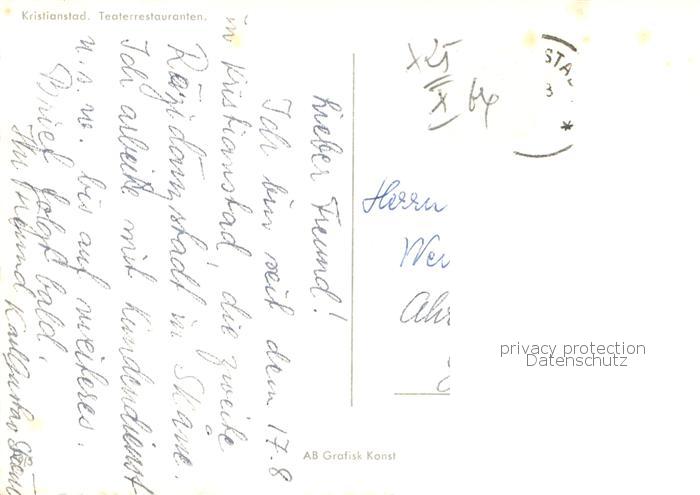 Kristianstad. Teaterrestauranten.
Lieber Freund!
Ich bin seit dem 17.8
in Kristianstad, die zweite
Residanzstadt in Skåne.
Ich arbeite mit Kundendienst
u.s.w. bis auf weiteres.
Brief folgt bald.
Ihr Freund Karlgustav
X25
X 64
STA
3
*
Herrn
Wer
Ahr
AB Grafisk Konst
privacy protection
Datenschutz